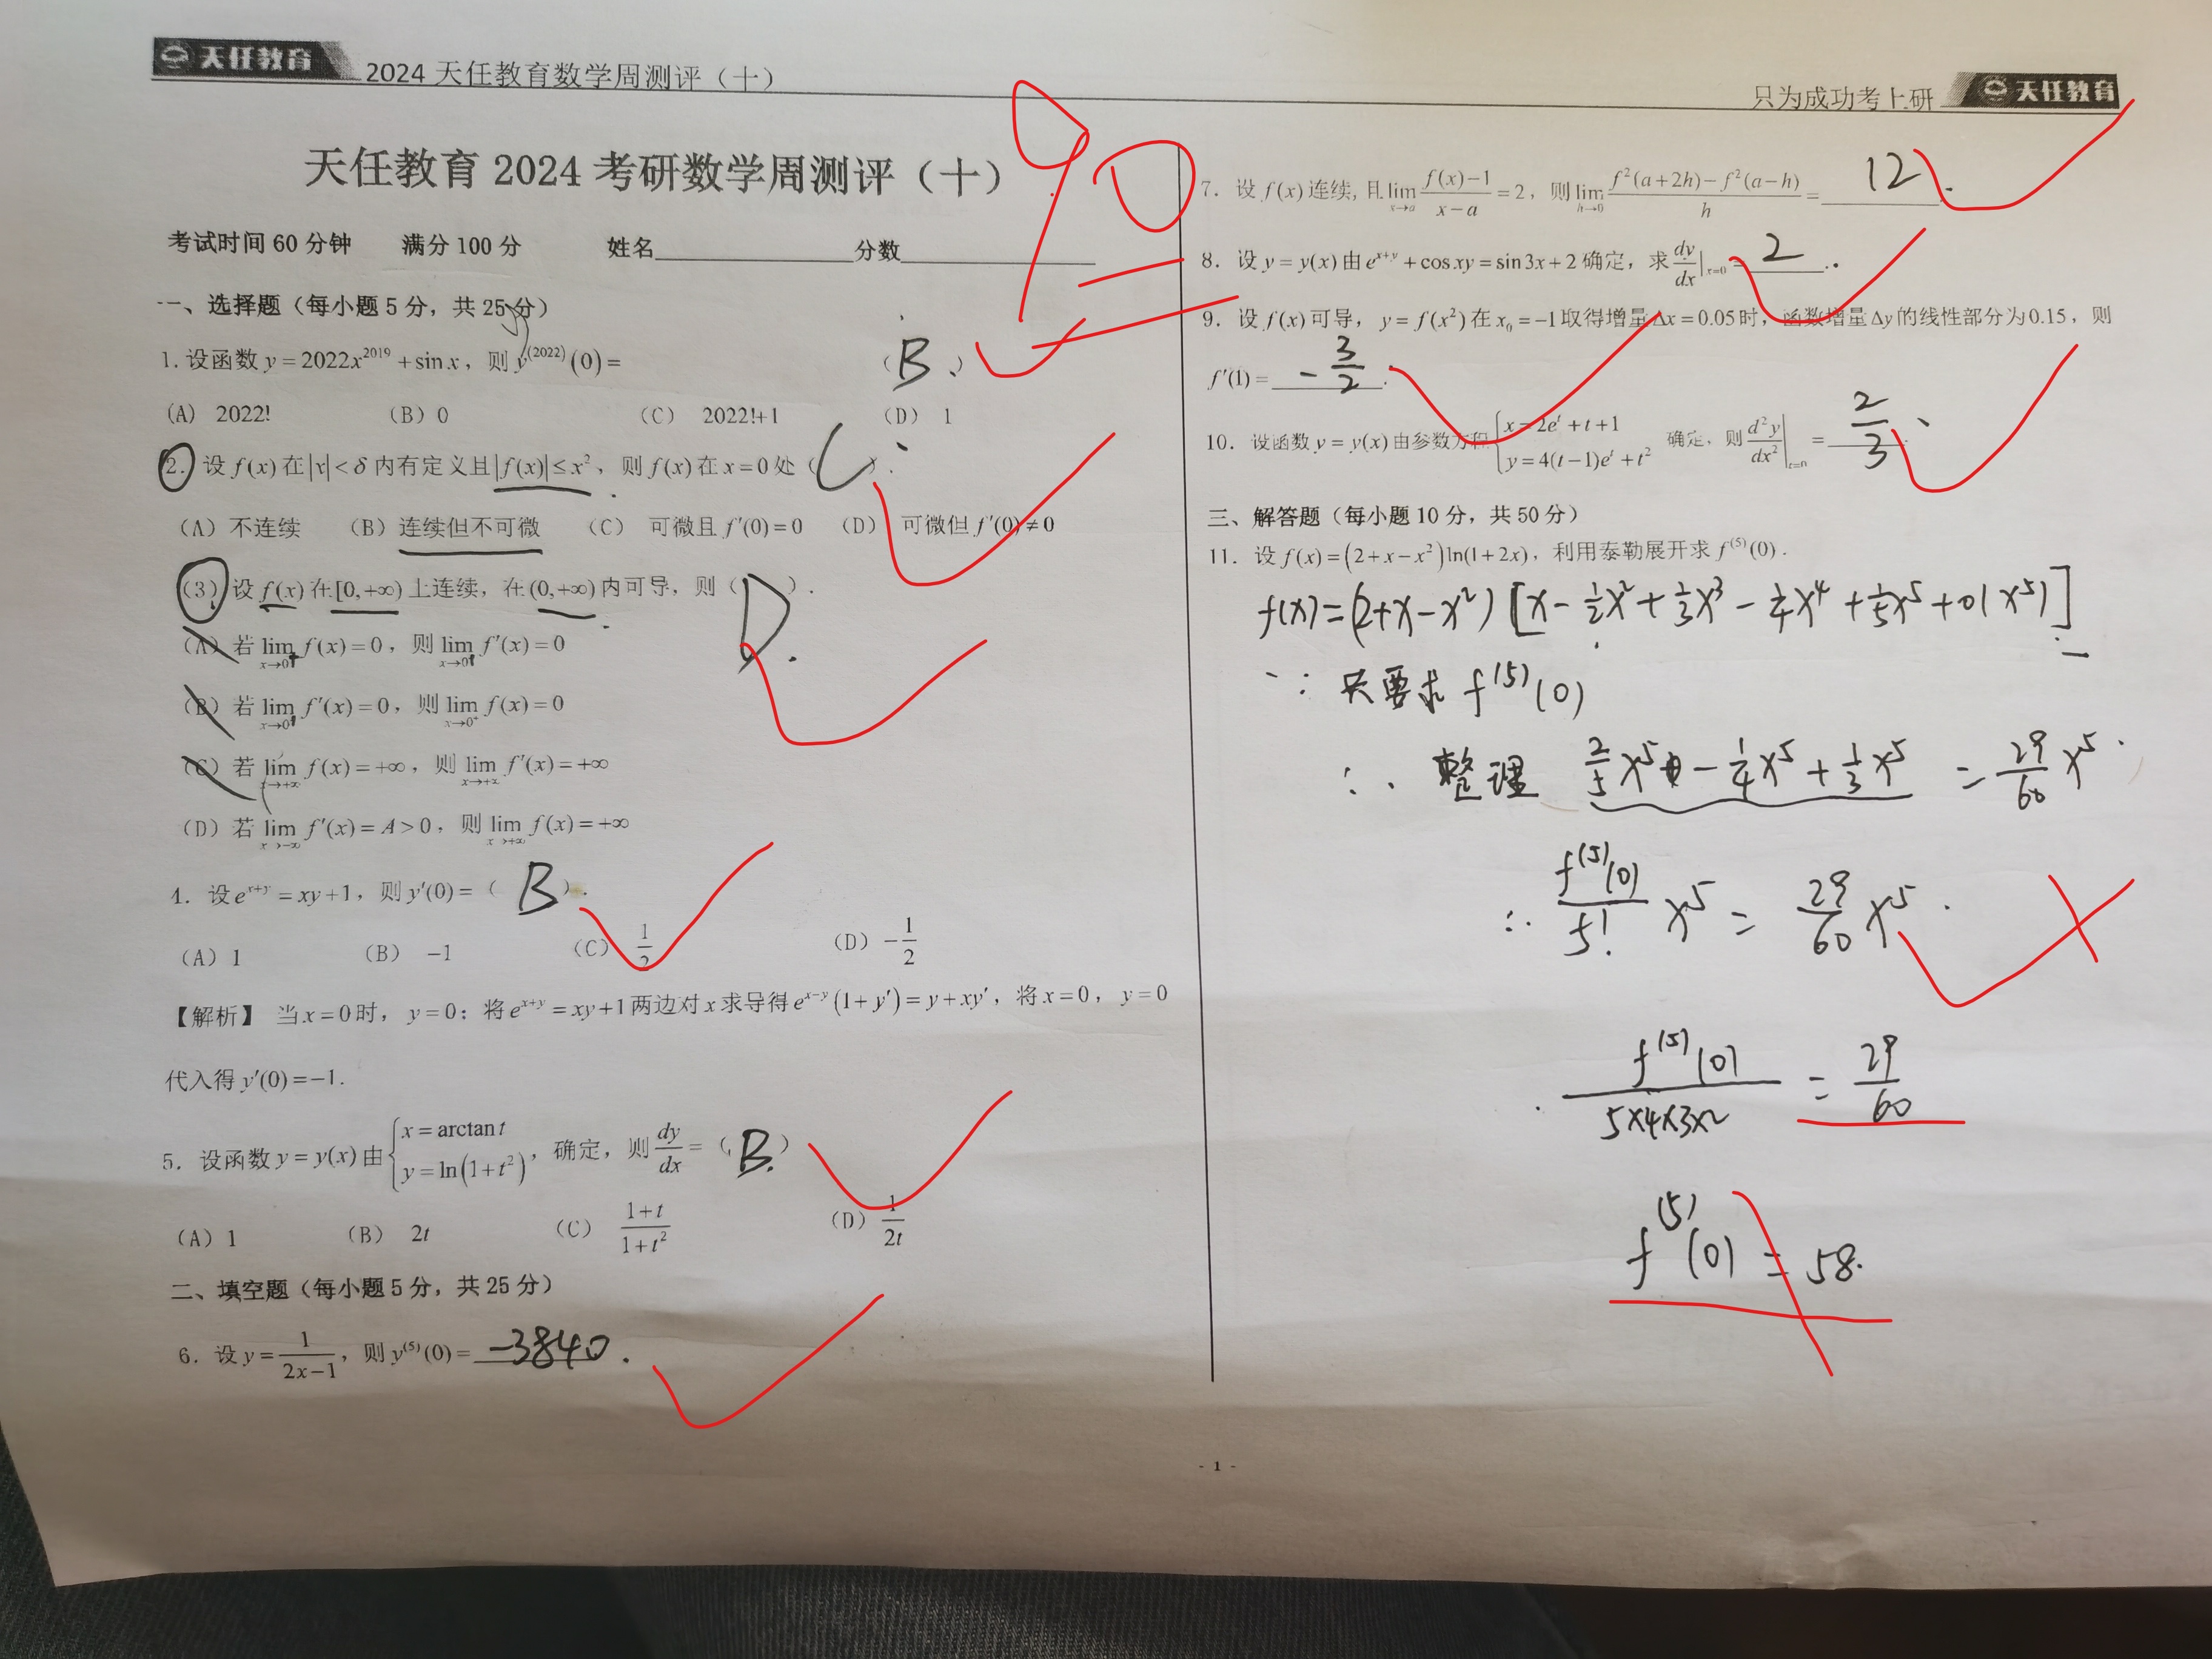 天任教育
2024 天任教育数学周测评（十）
只为成功考上研
天任教育
天任教育 2024 考研数学周测评（十）
90
考试时间 60 分钟 满分 100 分 姓名________ 分数________
一、选择题（每小题 5 分，共 25 分）
1. 设函数 y = 2022x^2019 + sin x，则 y^(2022)(0) = （ B 、）
(A) 2022! (B) 0 (C) 2022!+1 (D) 1
2. 设 f(x) 在 |x| < δ 内有定义且 |f(x)| ≤ x²，则 f(x) 在 x = 0 处（ C ）.
(A) 不连续 (B) 连续但不可微 (C) 可微且 f′(0) = 0 (D) 可微但 f′(0) ≠ 0
(3) 设 f(x) 在 [0,+∞) 上连续，在 (0,+∞) 内可导，则（ D. ）.
(A) 若 lim_{x→0⁺} f(x) = 0，则 lim_{x→0⁺} f′(x) = 0
(B) 若 lim_{x→0⁺} f′(x) = 0，则 lim_{x→0⁺} f(x) = 0
(C) 若 lim_{x→+∞} f(x) = +∞，则 lim_{x→+∞} f′(x) = +∞
(D) 若 lim_{x→+∞} f′(x) = A > 0，则 lim_{x→+∞} f(x) = +∞
4. 设 e^{x+y} = xy + 1，则 y′(0) = （ B ）.
(A) 1 (B) -1 (C) 1/2 (D) -1/2
【解析】 当 x = 0 时，y = 0；将 e^{x+y} = xy + 1 两边对 x 求导得 e^{x-y}(1 + y′) = y + xy′，将 x = 0，y = 0
代入得 y′(0) = -1.
5. 设函数 y = y(x) 由 { x = arctan t, y = ln(1 + t²)，确定，则 dy/dx = （ B. ）
(A) 1 (B) 2t (C) (1+t)/(1+t²) (D) 1/2t
二、填空题（每小题 5 分，共 25 分）
6. 设 y = 1/(2x-1)，则 y^(5)(0) = -3840 .
7. 设 f(x) 连续，且 lim_{x→a} (f(x)-1)/(x-a) = 2，则 lim_{h→0} (f²(a+2h) - f²(a-h))/h = 12 .
8. 设 y = y(x) 由 e^{x+y} + cos xy = sin 3x + 2 确定，求 dy/dx|_{x=0} = 2 .
9. 设 f(x) 可导，y = f(x²) 在 x₀ = -1 取得增量 Δx = 0.05 时，函数增量 Δy 的线性部分为 0.15，则
f′(1) = -3/2 .
10. 设函数 y = y(x) 由参数方程 { x = 2e^t + t + 1, y = 4(t-1)e^t + t² 确定，则 d²y/dx²|_{t=0} = 2/3 .
三、解答题（每小题 10 分，共 50 分）
11. 设 f(x) = (2 + x - x²) ln(1 + 2x)，利用泰勒展开求 f^(5)(0) .
f(x) = (2+x-x²) [x - 1/2 x² + 1/3 x³ - 1/4 x⁴ + 1/5 x⁵ + o(x⁵)]
∵ 只要求 f^(5)(0)
∴ 整理 2/5 x⁵ - 1/4 x⁵ + 1/3 x⁵ = 29/60 x⁵.
∴ f^(5)(0)/5! x⁵ = 29/60 x⁵.
f^(5)(0)/(5×4×3×2) = 29/60
f^(5)(0) = 58.
- 1 -